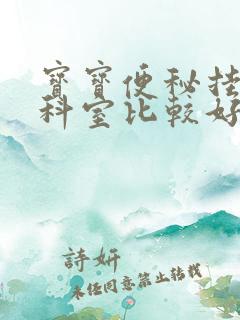 寶寶便秘挂
科室比較好
詩妍
未经同意禁止转载